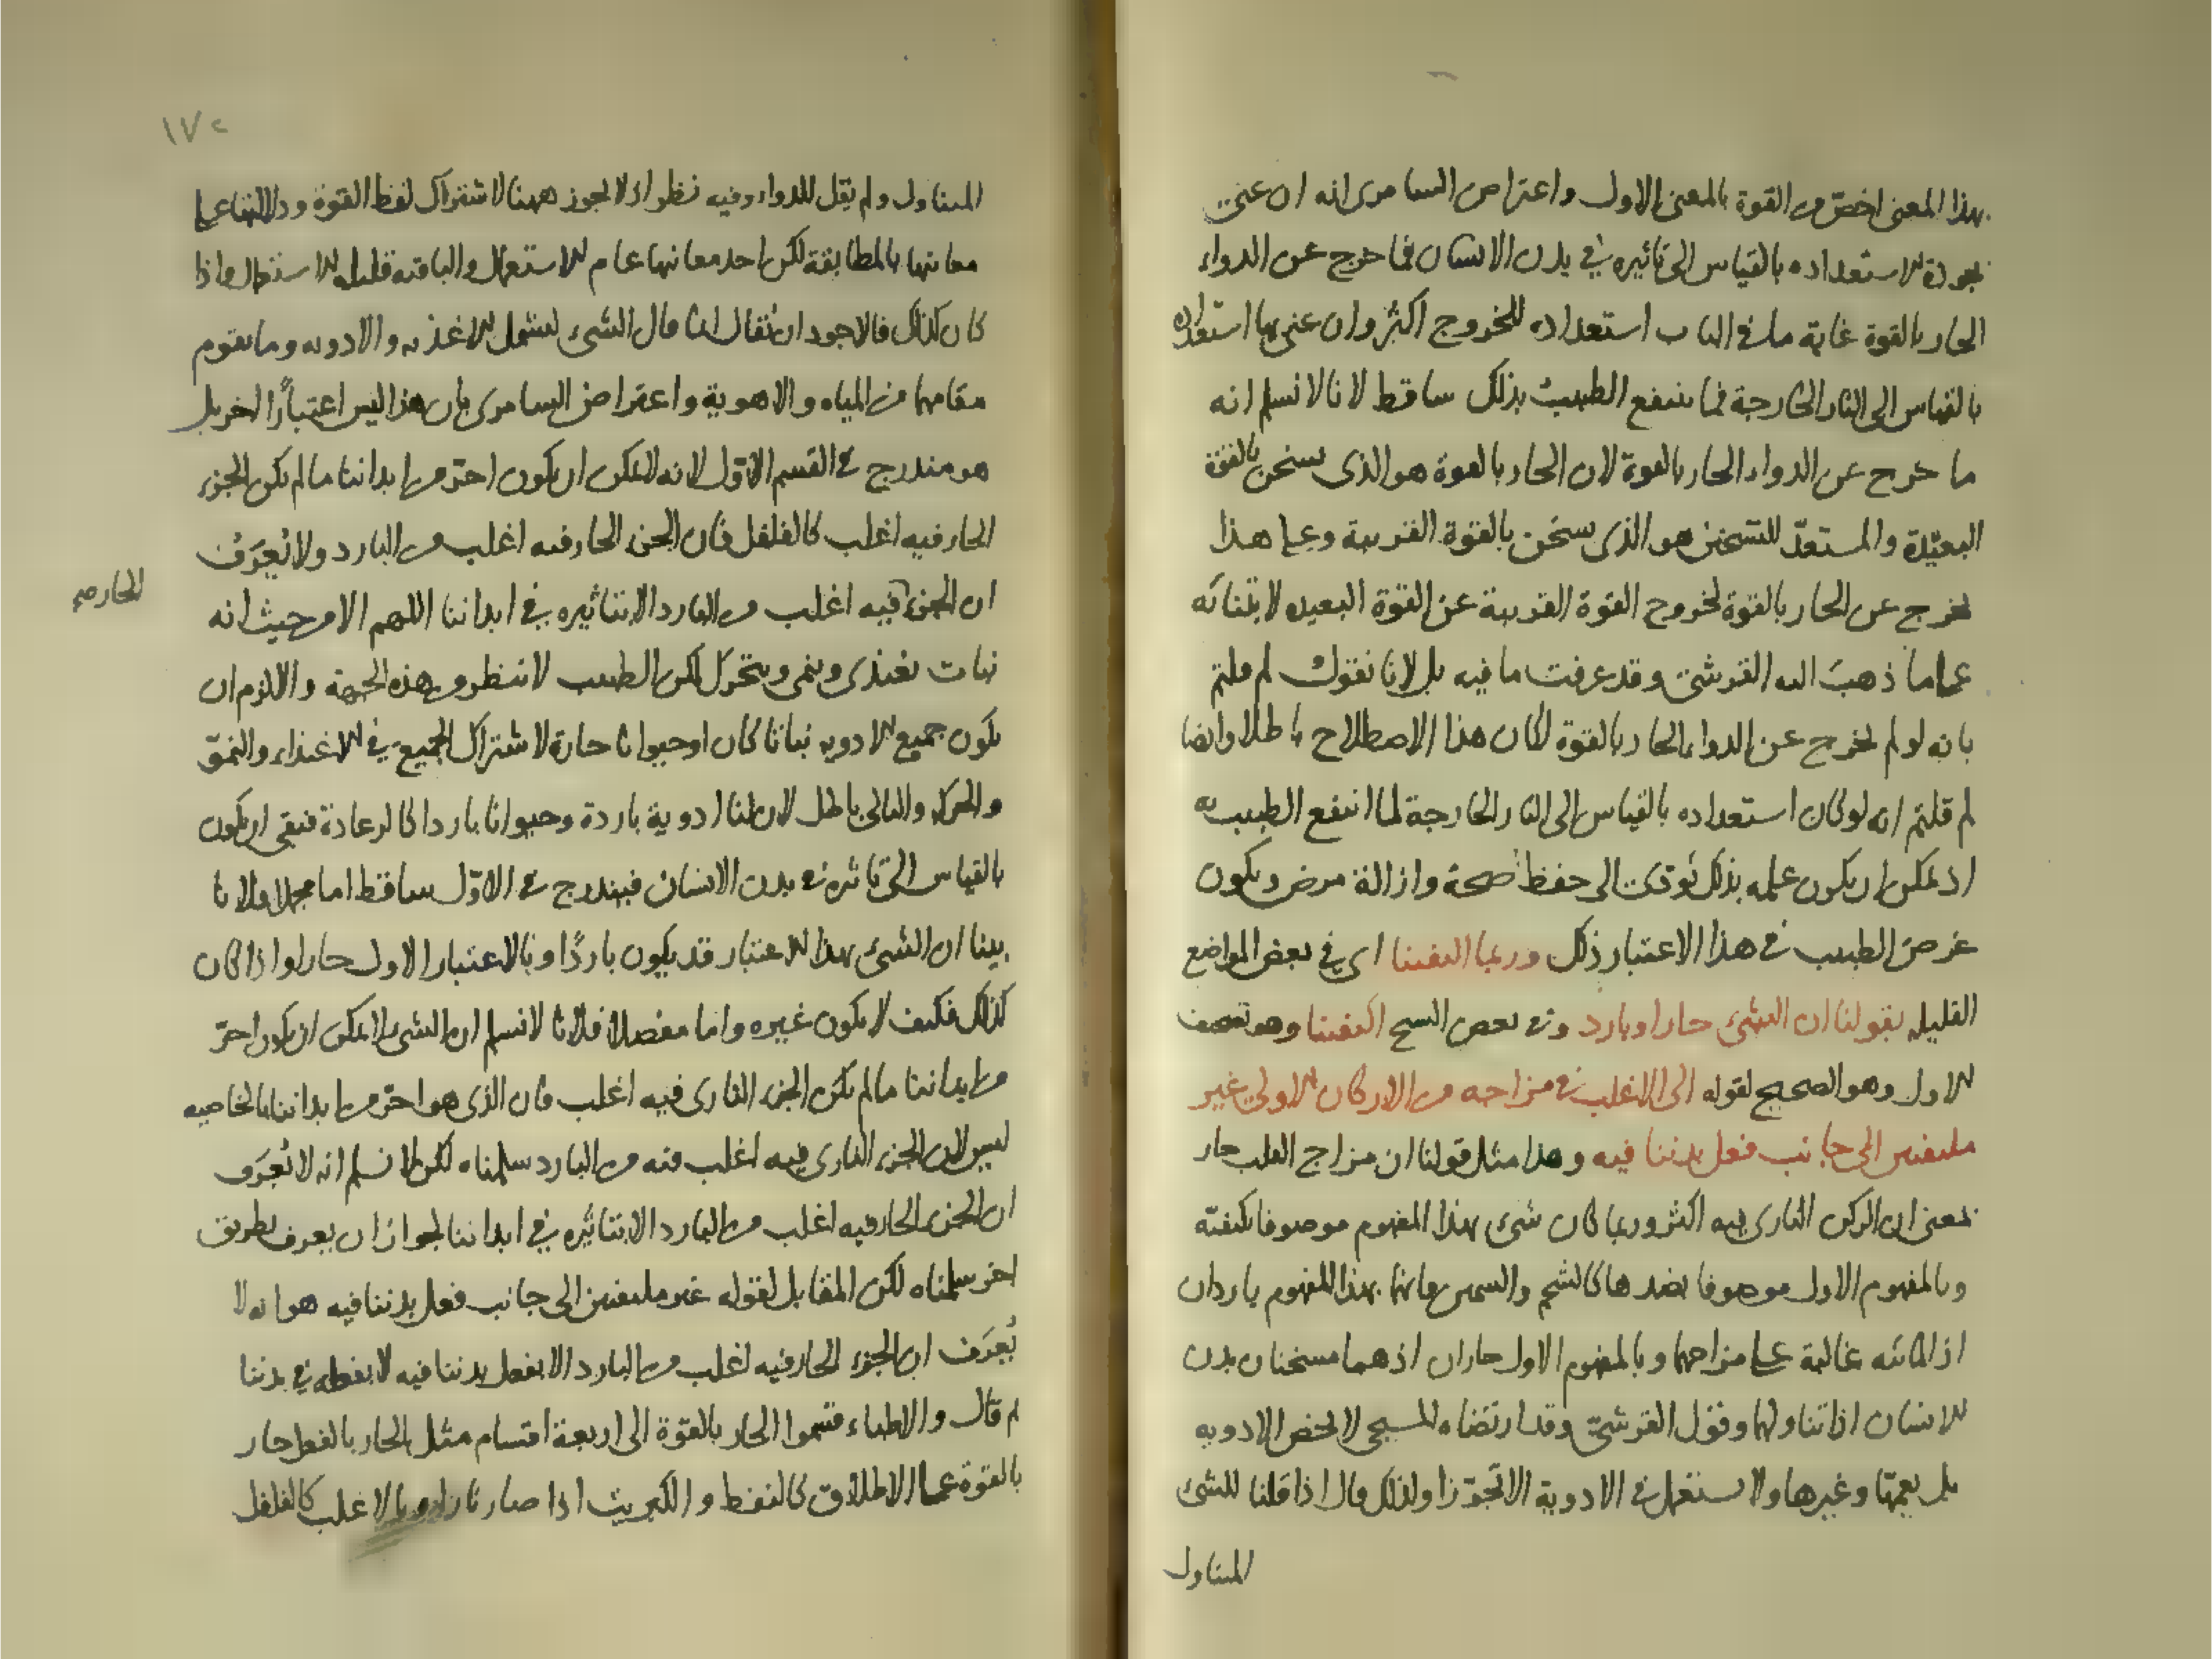 بهذا المعنى اخصّ من القوة بالمعنى الاول واعتراض السامرى انه ان عنى
بجودة الاستعداده بالقياس الى تاثيره في بدن الانسان فما خرج عن الدواء
الحار بالقوة غاية ما في الباب استعداده للخروج اكثر وان عنى بها استعداده
بالقياس الى النار الخارجة فما ينتفع الطبيب بذلك ساقط لانا لا نسلم انه
ما خرج عن الدواء الحار بالقوة لان الحار بالقوة هو الذى يسخن بالقوة
البعيدة والمستعدّ للتسخن هو الذى يسخن بالقوة القريبة وعلى هذا
يخرج عن الحار بالقوة لخروج القوة القريبة عن القوة البعيده لا بثنائه
على ما ذهب اليه القرشى وقد عرفت ما فيه بل لانا نقول لم قلتم
بانه لو لم يخرج عن الدواء الحار بالقوة لكان هذا الاصطلاح باطلا وايضا
لم قلتم انه لو كان استعداده بالقياس الى النار الخارجة لما انتفع الطبيب به
اذ يمكن ان يكون علمه بذلك يؤدى الى حفظ صحة وازالة مرض ويكون
غرض الطبيب في هذا الاعتبار ذلك وربما التفتنا اى في بعض المواضع
القليلة بقولنا ان الشئ حار او بارد وفى بعض النسخ اكتفينا وهو تصحيف
الاول وهو الصحيح لقوله الى الاغلب في مزاجه من الاركان الاولى غير
ملتفتين الى جانب فعل بدننا فيه وهذا مثل قولنا ان مزاج القلب حار
بمعنى ان الركن النارى فيه اكثر وربما كان شئ بهذا المفهوم موصوفا بكيفية
وبالمفهوم الاول موصوفا بضدها كالشحم والسمين فانهما بهذا المفهوم باردان
اذ المائية غالبة على مزاجهما وبالمفهوم الاول حاران اذ هما مسخنان بدن
الانسان اذا تناولهما وقول القرشى وقد ارتضاه المسيحى لا يخص الادوية
بل يعمها وغيرها ولا يستعمل في الادوية الا تجوّزا ولذلك قال اذا قلنا للشئ
المتناول
١٧٢
المتناول ولم يقل للدواء وفيه نظر اذ لا يجوز ههنا لاشتراك لفظ القوة ودلالتها على
معانيها بالمطابقة لكن احد معانيها عام الاستعمال والباقية قليلة الاستعمال واذا
كان كذلك فالاجود ان يقال انما قال الشئ ليشمل الاغذية والادوية وما يقوم
مقامهما من المياه والاهوية واعتراض السامرى بان هذا ليس اعتبارًا اخر بل
هو مندرج في القسم الاوّل لانه لا يمكن ان يكون احرّ من ابداننا ما لم يكن الجزء
الحار فيه اغلب كالفلفل فان الجزء الحار فيه اغلب من البارد ولا يُعرَف
ان الجزء فيه اغلب من البارد الا بتاثيره في ابداننا اللهم الا من حيث انه
الحار صح
نبات يغتذى وينمى ويتحرك لكن الطبيب لا ينظر من هذه الجهة والا لزم ان
يكون جميع الادوية نباتا كان او حيوانا حارة لاشتراك الجميع في الاغتذاء والنموّ
والحركة والتالى باطل لان لنا ادوية باردة وحيوانا باردا كالرعادة فبقى ان يكون
بالقياس الى تاثيره في بدن الانسان فيندرج في الاوّل ساقط اما مجملا فلانا
بينا ان الشئ بهذا الاعتبار قد يكون باردًا وبالاعتبار الاول حارا واذا كان
كذلك فكيف لا يكون غيره واما مفصلا فلانا لا نسلم ان الشئ لا يمكن ان يكون احرّ
من ابداننا ما لم يكن الجزء النارى فيه اغلب فان الذى هو احرّ من ابداننا بالخاصية
ليس لان الجزء النارى فيه اغلب فيه من البارد سلمناه لكن لا نسلم انه لا يُعرَف
ان الجزء الحار فيه اغلب من البارد الا بتاثيره في ابداننا لجواز ان يعرف بطريق
اخر سلمناه لكن المقابل لقوله غير ملتفتين الى جانب فعل بدننا فيه هو انه لا
يُعرَف ان الجزء الحار فيه اغلب من البارد الا بفعل بدننا فيه لا بفعله في بدننا
ثم قال والاطباء قسموا الحار بالقوة الى اربعة اقسام مثل الحار بالفعل حار
بالقوة على الاطلاق كالنفط والكبريت اذا صار نارا وبالاغلب كالفلفل